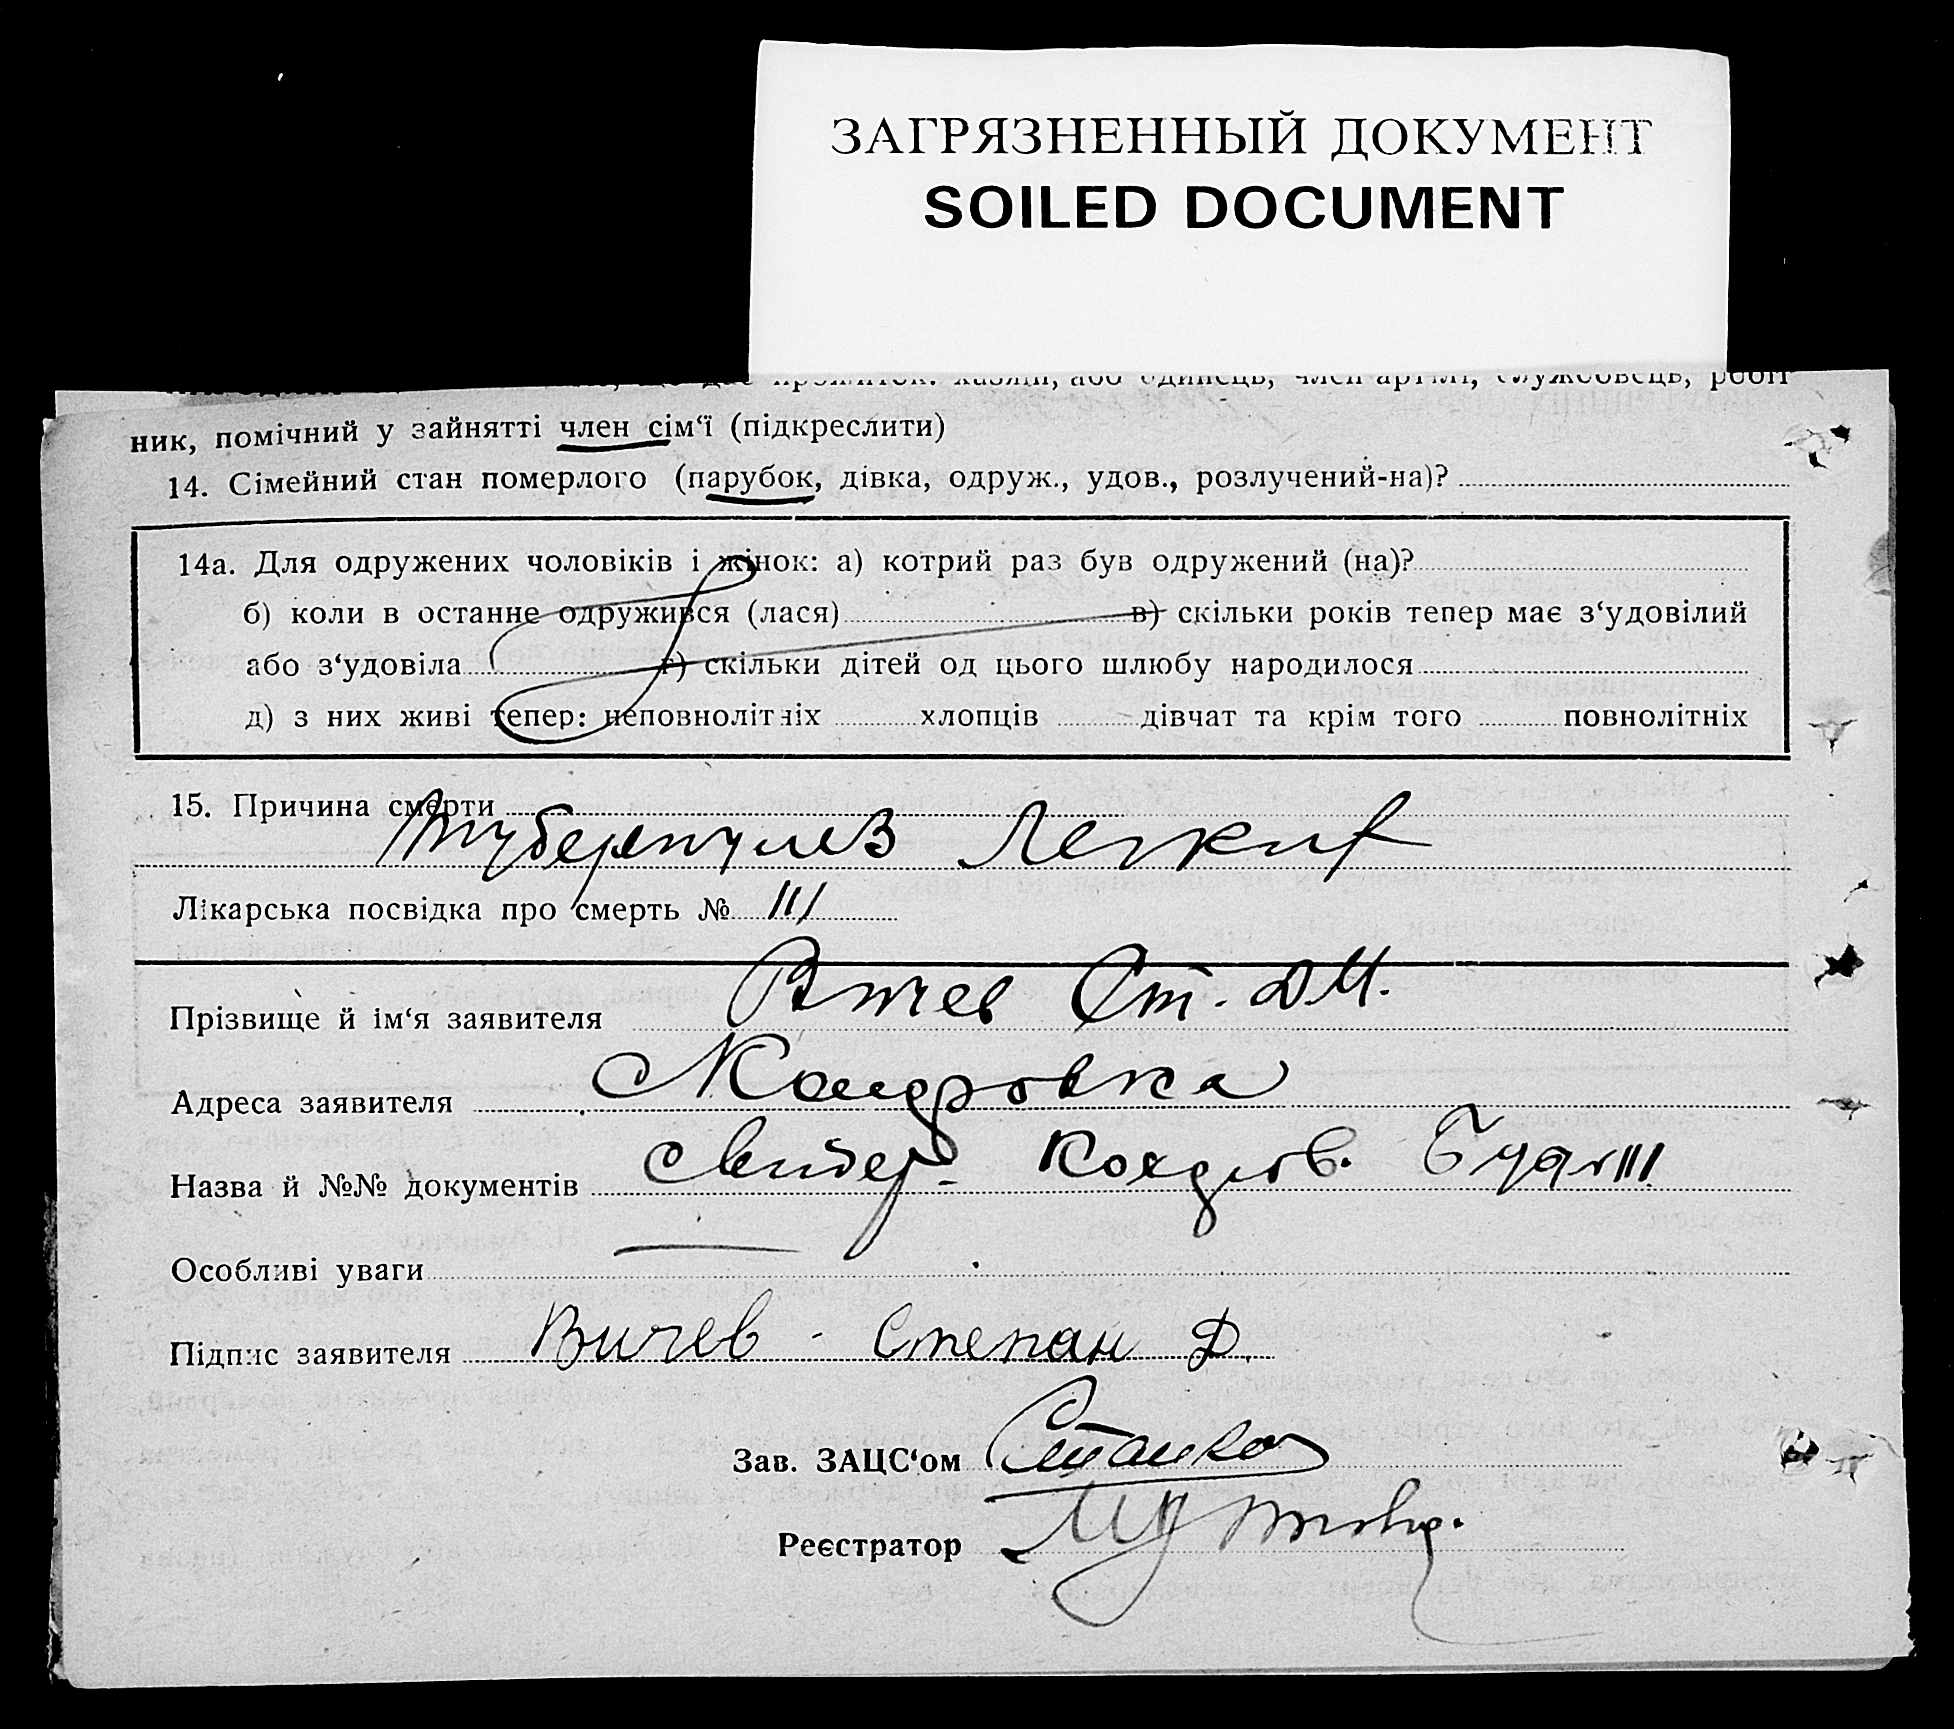 ЗАГРЯЗНЕННЫЙ ДОКУМЕНТ
SOILED DOCUMENT
хазяїн, або одинець, член артілі, службовець, робіт
ник, помічний у зайнятті член сім‘ї (підкреслити)
14. Сімейний стан померлого (парубок, дівка, одруж., удов., розлучений-на)?
14а. Для одружених чоловіків і жінок: а) котрий раз був одружений (на)?
б) коли в останне одружився (лася) в) скільки років тепер має з‘удовілий
або з‘удовіла г) скільки дітей од цього шлюбу народилося
д) з них живі тепер: неповнолітніх хлопців дівчат та крім того повнолітніх
15. Причина смерти
туберкулез Легких
Лікарська посвідка про смерть № 111
Прізвище й ім‘я заявителя Вичев Ст. ДМ.
Адреса заявителя
Назва й №№ документів
Особливі уваги
Підпис заявителя Вичев - Степан Д.
Зав. ЗАЦС‘ом
Реєстратор